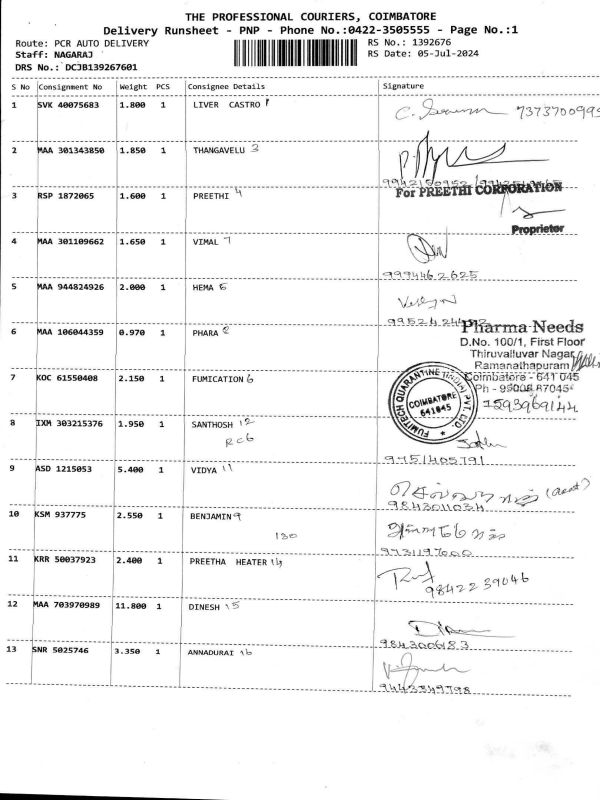 THE PROFESSIONAL COURIERS, COIMBATORE
Delivery Runsheet - PNP - Phone No.:0422-3505555 - Page No.:1
Route: PCR AUTO DELIVERY RS No.: 1392676
Staff: NAGARAJ RS Date: 05-Jul-2024
DRS No.: DCJB139267601
S No Consignment No Weight PCS Consignee Details Signature
1 SVK 40075683 1.800 1 LIVER CASTRO 1
2 MAA 301343850 1.850 1 THANGAVELU 3
For PREETHI CORPORATION
3 RSP 1872065 1.600 1 PREETHI 4
Proprietor
4 MAA 301109662 1.650 1 VIMAL 7
9994462625
5 MAA 944824926 2.000 1 HEMA 6
Pharma Needs
6 MAA 106044359 0.970 1 PHARA 8
D.No. 100/1, First Floor
Thiruvalluvar Nagar
Ramanathapuram
Coimbatore - 641 045
FUMITECH QUARANTINE (INDIA) PVT. LTD.
COIMBATORE
641045
7 KOC 61550408 2.150 1 FUMICATION 6
8 IXM 303215376 1.950 1 SANTHOSH 12
RC6
9751405791
9 ASD 1215053 5.400 1 VIDYA 11
9843011034
10 KSM 937775 2.550 1 BENJAMIN 9
130
9731197000
11 KRR 50037923 2.400 1 PREETHA HEATER 14
9842239046
12 MAA 703970989 11.800 1 DINESH 15
9843006183
13 SNR 5025746 3.350 1 ANNADURAI 16
9443349798